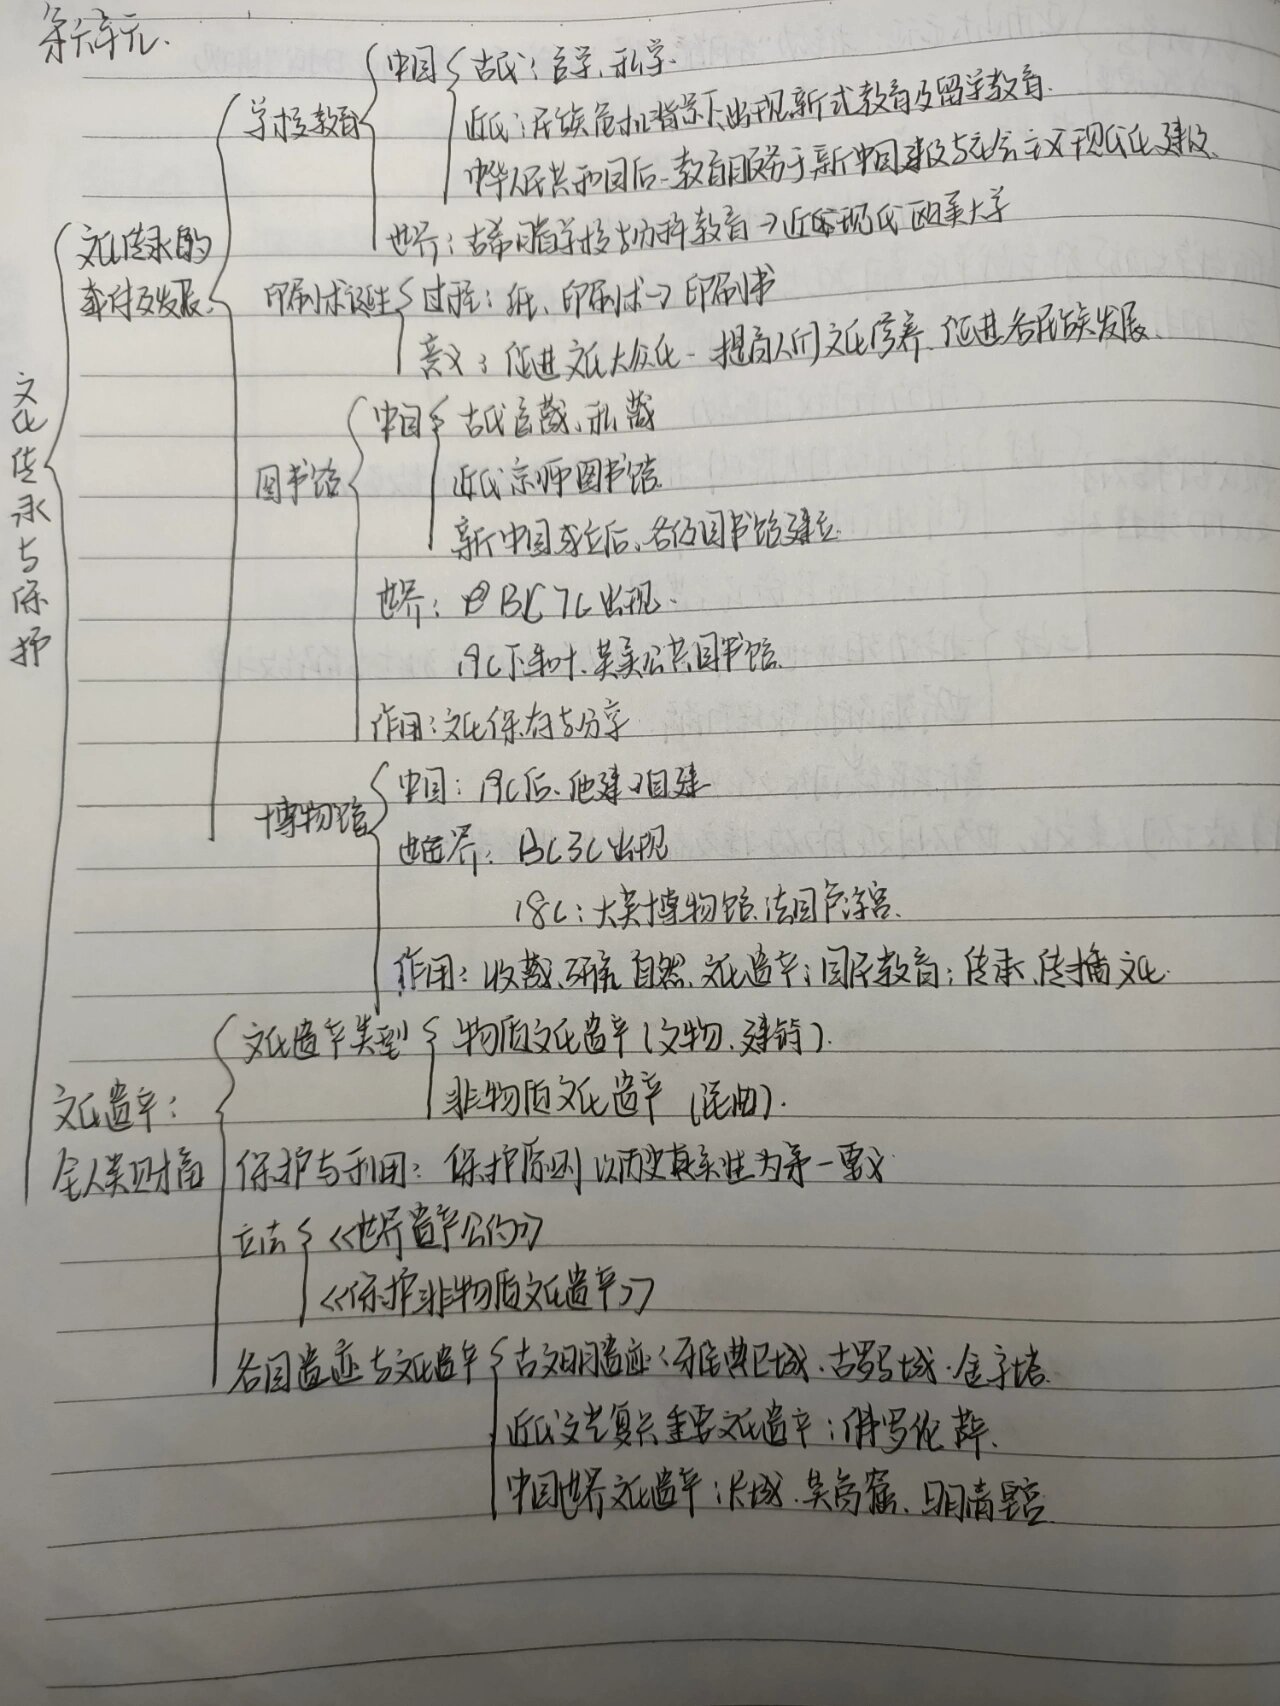 第六单元.
学校教育
中国
古代：官学、私学.
近代：民族危机背景下出现新式教育及留学教育.
中华人民共和国后-教育服务于新中国建设与社会主义现代化建设、
世界：古希腊学校与分科教育→近代现代欧美大学
文化传承的
载体及发展.
印刷术诞生
过程：纸、印刷术→印刷书
意义：促进文化大众化-提高人们文化修养、促进各民族发展、
文化传承与保护
图书馆
中国
古代官藏、私藏
近代京师图书馆
新中国成立后、各级图书馆建立.
世界：BC7C出现.
19C下半叶、英美公共图书馆.
作用：文化保存与分享
博物馆
中国：19C后、他建→自建
世界：BC3C出现
18C：大英博物馆、法国卢浮宫.
作用：收藏、研究 自然、文化遗产；国民教育；传承、传播文化.
文化遗产：
全人类财富
文化遗产类型
物质文化遗产（文物、建筑）.
非物质文化遗产（昆曲）.
保护与利用：保护原则 以历史真实性为第一要义
立法
《世界遗产公约》
《保护非物质文化遗产》
各国遗迹与文化遗产
古文明遗迹：雅典卫城、古罗马城、金字塔.
近代文艺复兴重要文化遗产：佛罗伦萨.
中国世界文化遗产：长城、莫高窟、明清皇宫.